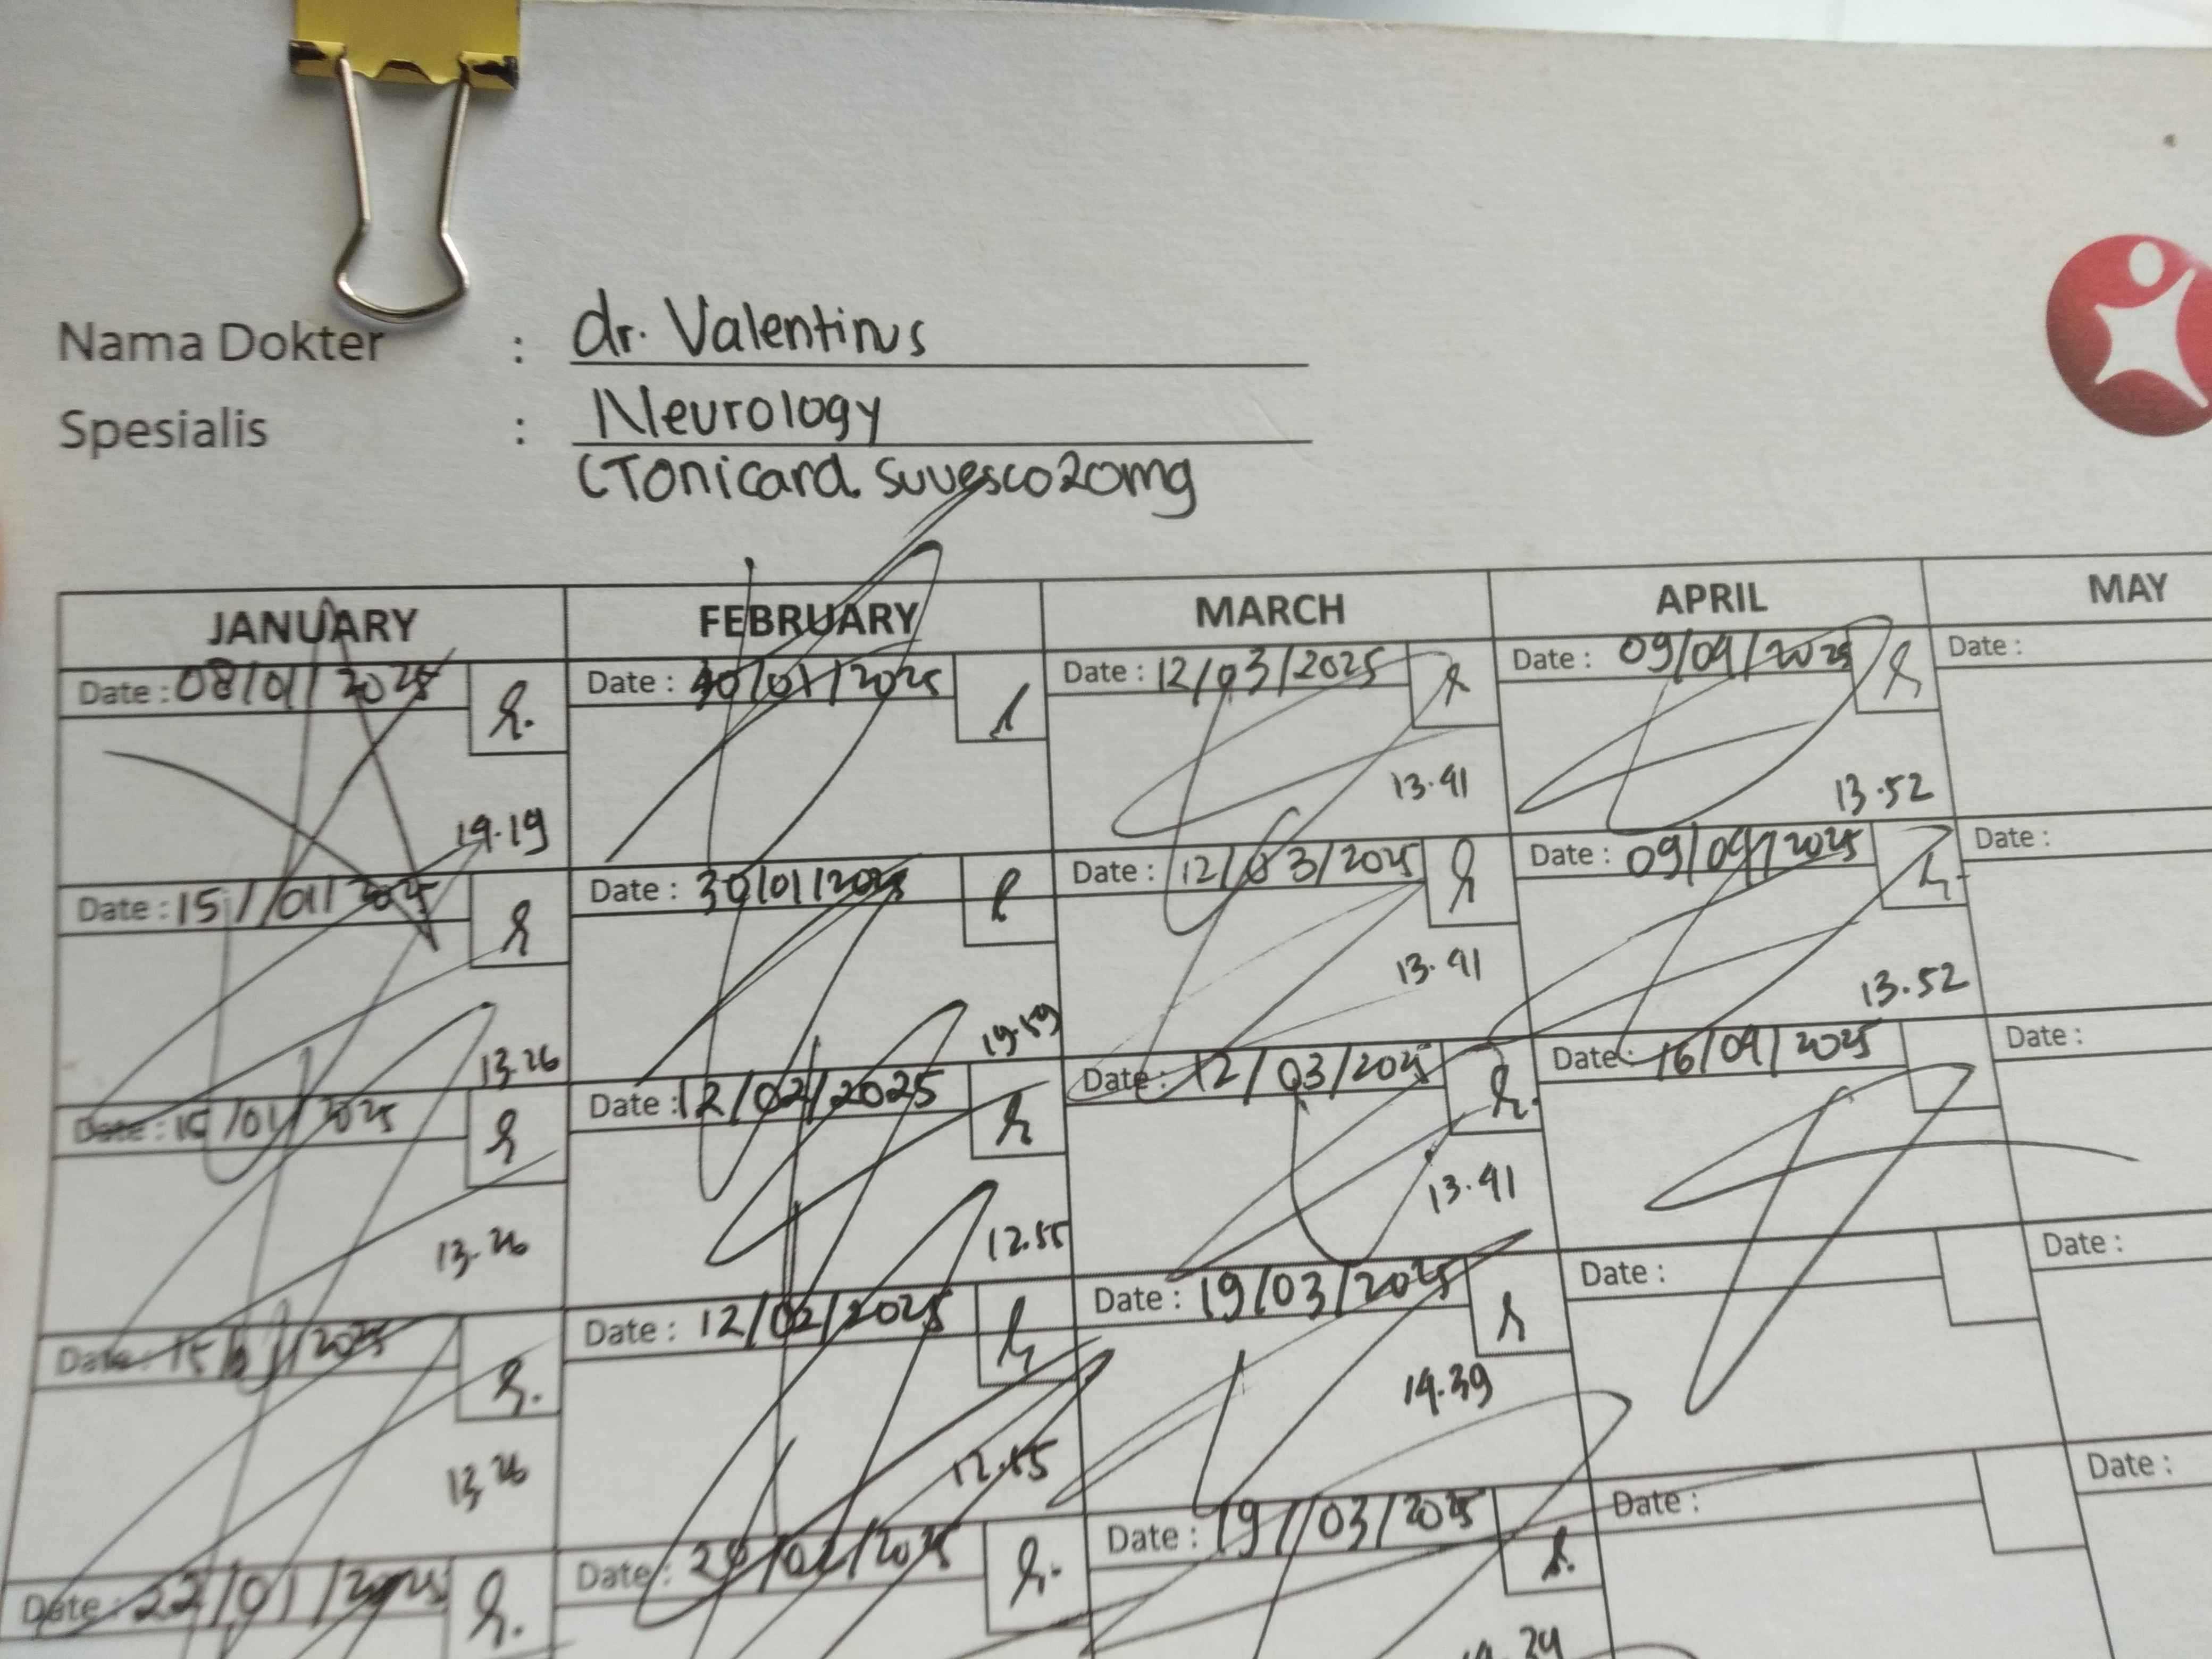 Nama Dokter : dr. Valentinus
Spesialis : Neurology
(Tonicard. Suvesco 20mg
JANUARY FEBRUARY MARCH APRIL MAY
Date : 08/01/2025 Date : 30/01/2025 Date : 12/03/2025 Date : 09/04/2025 Date :
14.19 13.41 13.52
Date : 15/01/2025 Date : 30/01/2025 Date : 12/03/2025 Date : 09/04/2025 Date :
13.26 19.59 13.41 13.52
Date : 15/01/2025 Date : 12/02/2025 Date : 12/03/2025 Date : 16/04/2025 Date :
13.26 12.55 13.41
Date : 15/01/2025 Date : 12/02/2025 Date : 19/03/2025 Date : Date :
13.26 12.55 14.39
Date : 22/01/2025 Date : /02/2025 Date : 19/03/2025 Date : Date :